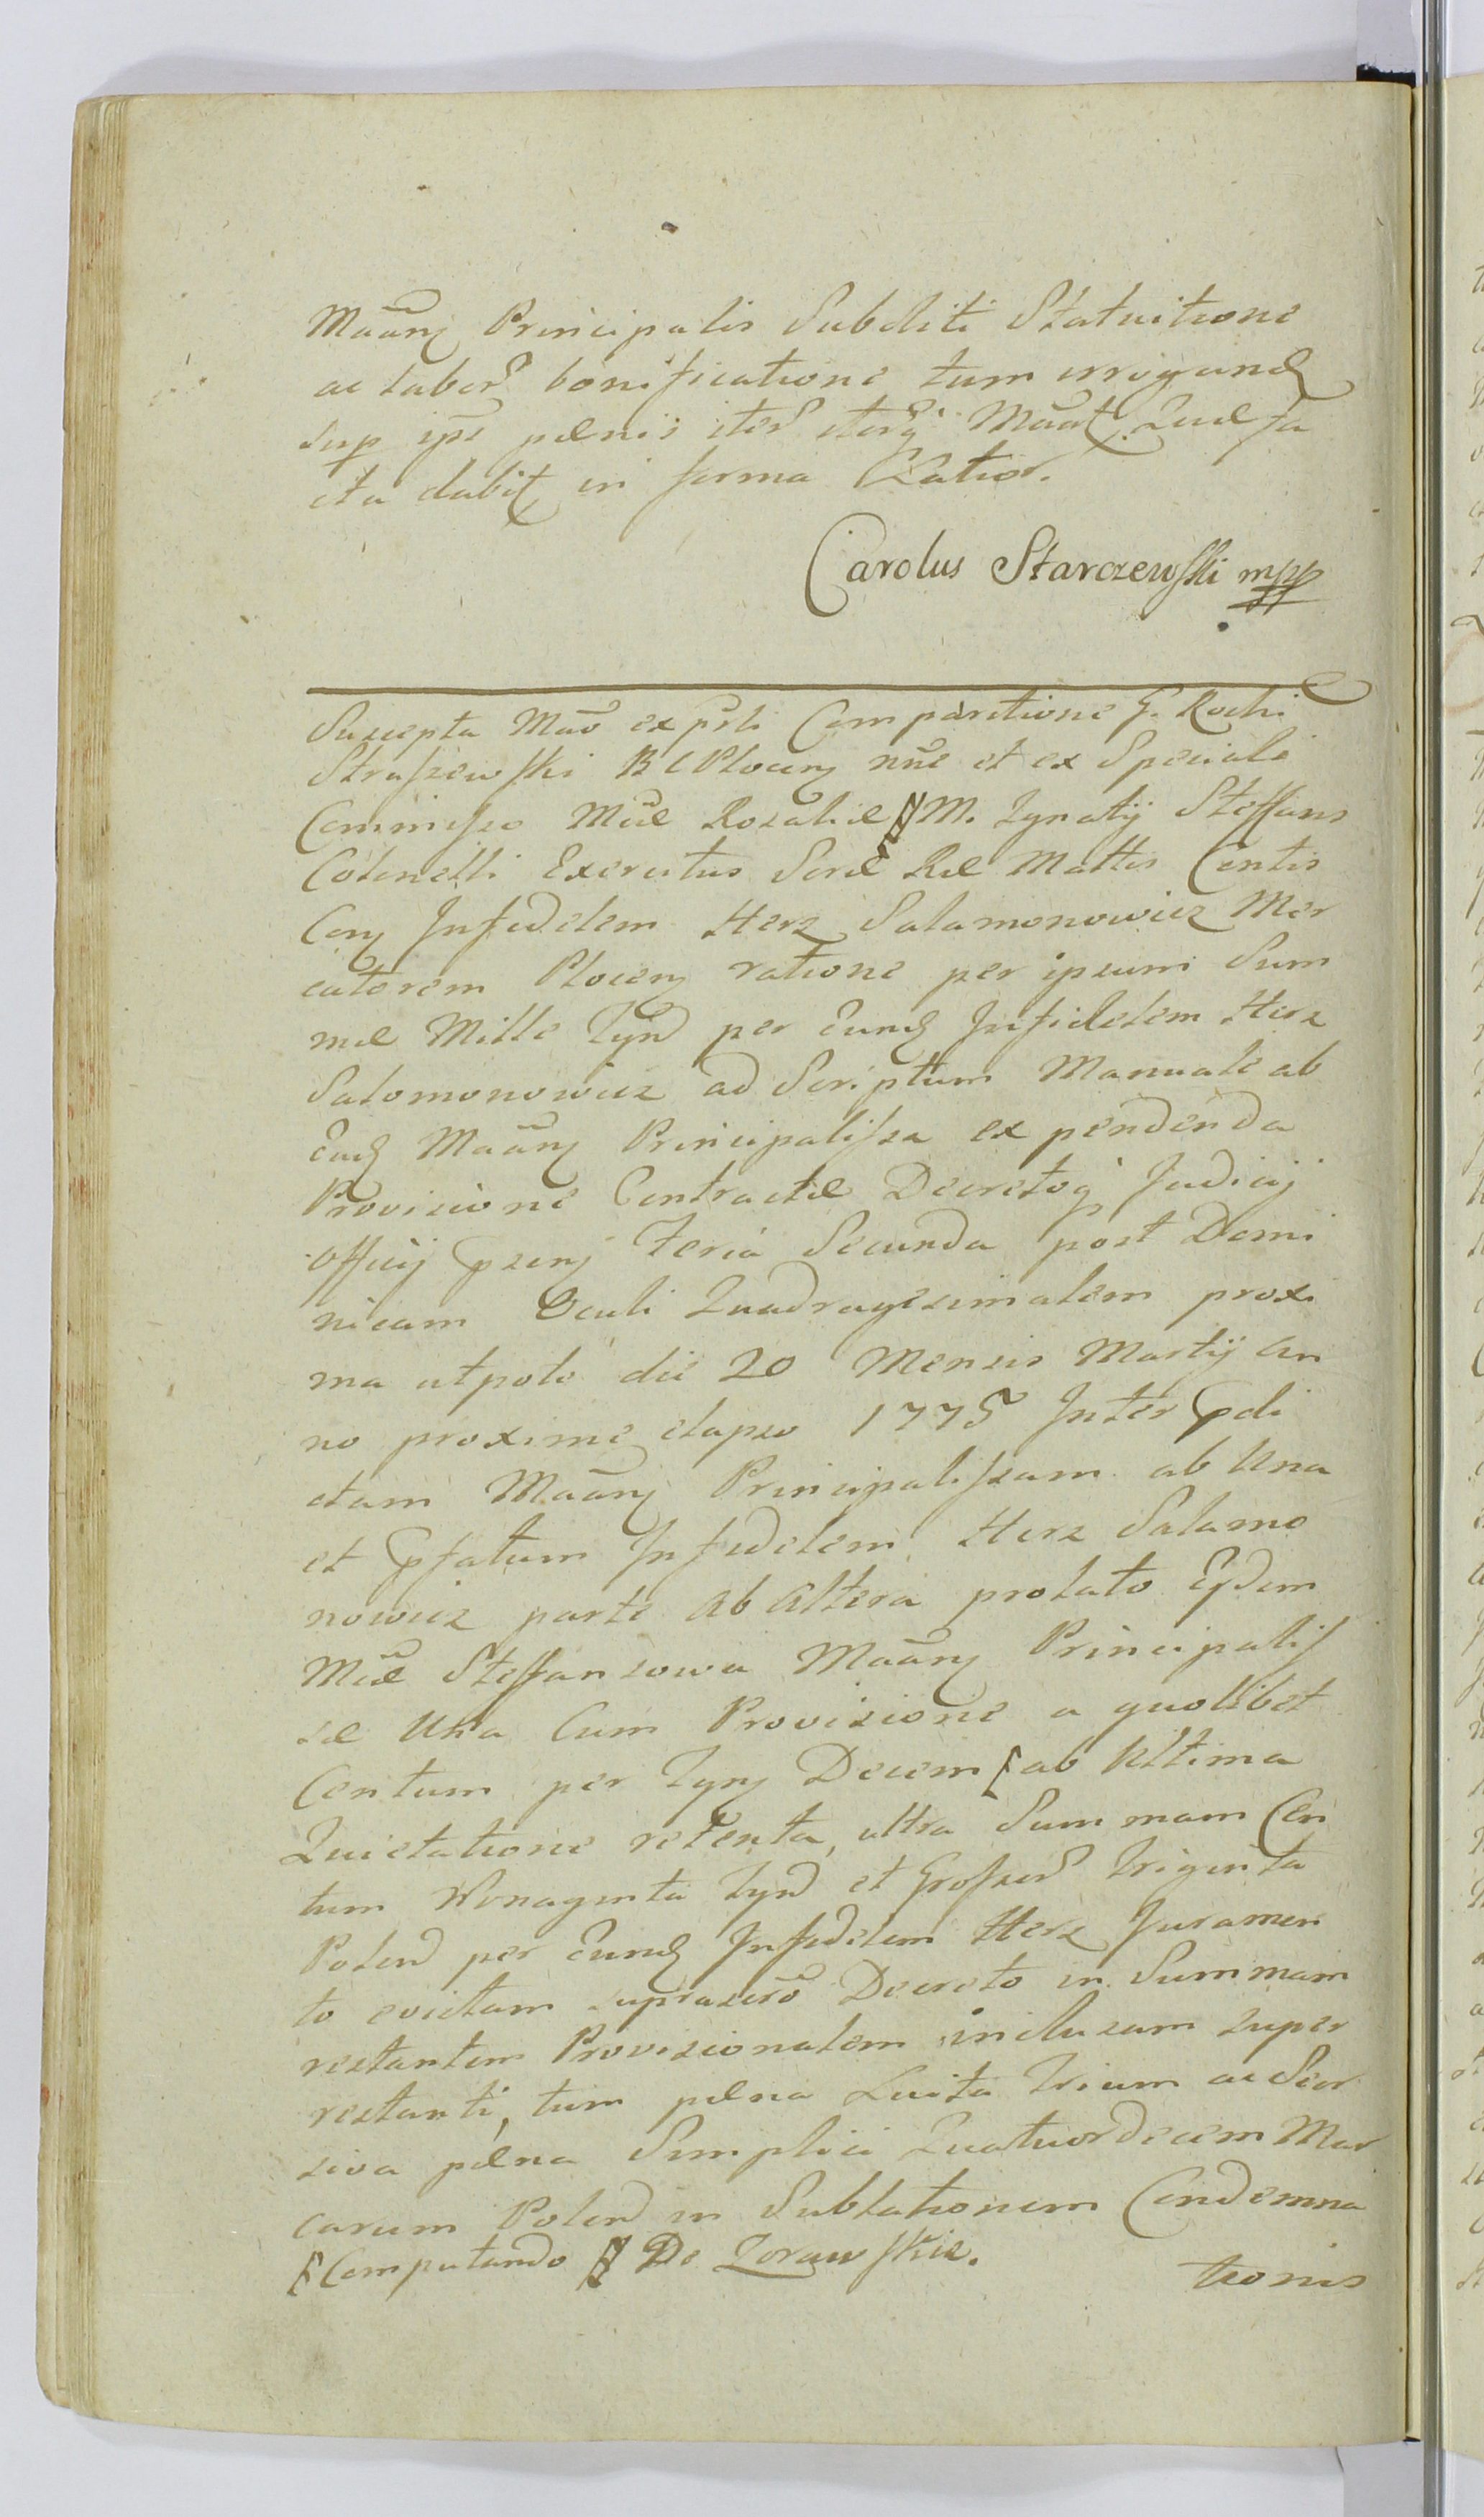 Mãanȝ Principalis Subditi Statuitione
ac labor bonificatione tum irrigand
sup ipse pænis iter iterq Mãat. Quæ fa
cta dabit in forma Ration.
Carolus Starczewski mpp
Suscepta Mão ex psti Comparitione G. Rochi
Straszewski B C Plocen nñe et ex Speciali
Commisso Mĩæ Rosaliæ M. Ignatij Steffans
Colonelli Exercitus Seræ Ræ Mattis Contis
Con Infidelem Herz Salamonowicz Mer
catorem Plocen ratione per ipsum Sum
mæ Mille Tyn per Eund Infidelem Herz
Salomonowicz ad Scriptum Manuale ab
Ead Mãan Principalissa ex pendenda
Provisione Contractæ Decretoq Judicij
Officij pzen Feria Secunda post Domi
nicam Oculi Quadragesimalem proxi
ma utpote die 20 Mensis Martij An
no proxime elapso 1775 Inter pdi
ctam Mãan Principalissam ab Una
et pfatum Infidelem Herz Salamo
nowicz parte ab Altera prolato Eydem
Mĩæ Steffansowa Mãan Principalis
sæ Una Cum Provisione a quolibet
Centum per Tyn Decem ab Ultima
Quietatione retenta, ultra Summam Cen
tum Nonaginta Tyn et Grossor Triginta
Polon per Eund Infidelem Herz Juramen
to evictam suprascro Decreto in Summam
restantem Provisionalem inclusam super
restanti, tum pæna Luita Trium ac Seor
siva pæna Simplici Quatuordecem Mar
carum Polon in Sublationem Condemna
Computando De Zorawskie.
tionis